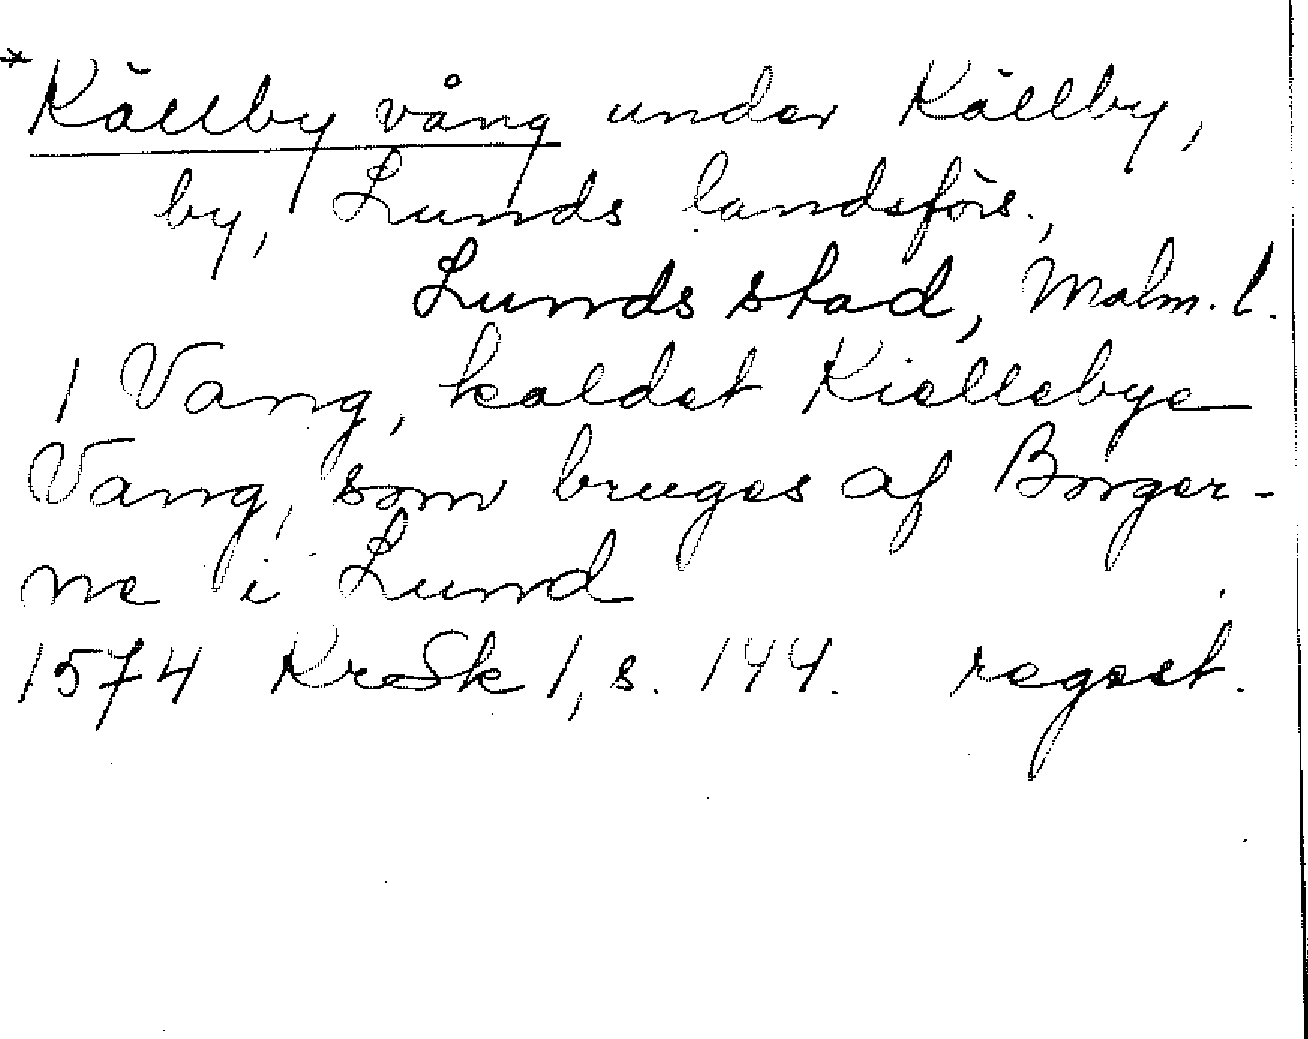 *Källby vång under Källby,
by, Lunds landsförs.,
Lunds stad, Malm. l.
1 Vang, kaldet Kiellebye
Vang, som bruges af Borger-
ne i Lund
1574 KroSk 1, s. 144. regest.